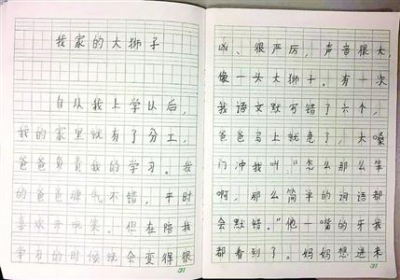 我家的大狮子
自从我上学以后，
我的家里就有了分工，
爸爸负责我的学习。我
的爸爸脾气不错，平时
喜欢开玩笑。但在陪我
学习的时候就会变得很
凶、很严厉，声音很大，
像一头大狮子。有一次
我语文默写错了六个，
爸爸马上就急了，大嗓
门冲我叫“怎么那么笨
啊，那么简单的词语都
会默错。”他一嘴的牙我
都看到了。妈妈想进来